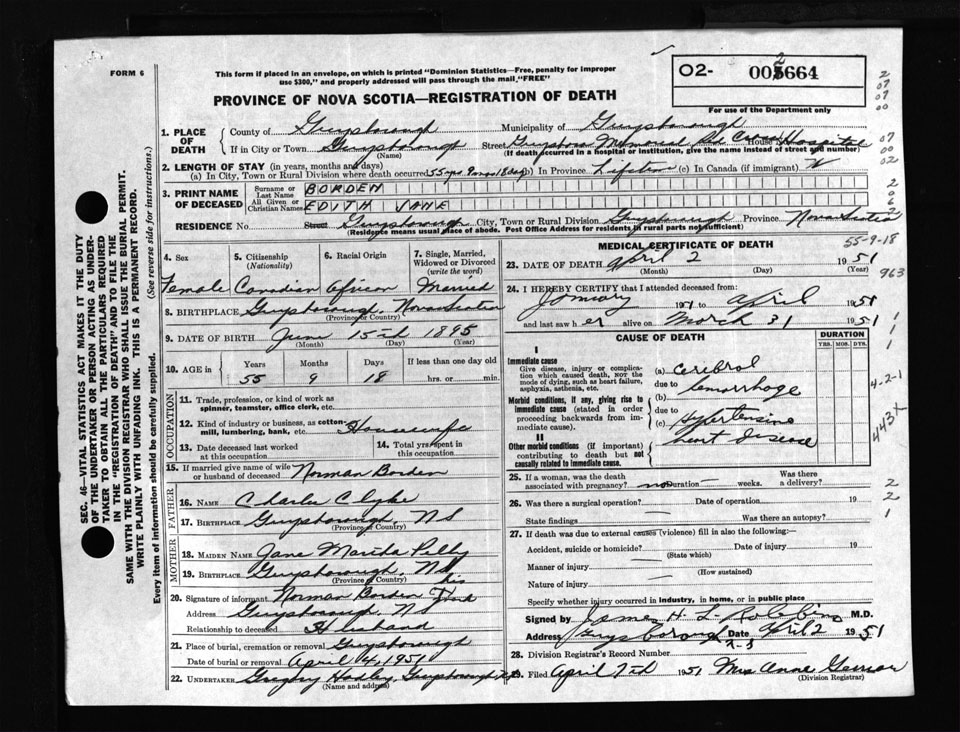 FORM 6
This form if placed in an envelope, on which is printed "Dominion Statistics—Free, penalty for improper
use $300," and properly addressed will pass through the mail, "FREE"
PROVINCE OF NOVA SCOTIA—REGISTRATION OF DEATH
02- 664
For use of the Department only
1. PLACE OF DEATH
County of Guysborough Municipality of Guysborough
If in City or Town Guysborough Street Memorial Red Cross Hospital
(Name) (If death occurred in a hospital or institution, give the name instead of street and number)
2. LENGTH OF STAY (in years, months and days)
(a) In City, Town or Rural Division where death occurred 55 yrs 9 mos 18 days (b) In Province Lifetime (c) In Canada (if immigrant)
3. PRINT NAME OF DECEASED
Surname or Last Name BORDEN
All Given or Christian Names EDITH JANE
RESIDENCE No. Street Guysborough City, Town or Rural Division Guysborough Province Nova Scotia
(Residence means usual place of abode. Post Office Address for residents in rural parts not sufficient)
4. Sex 5. Citizenship (Nationality) 6. Racial Origin 7. Single, Married, Widowed or Divorced (write the word)
Female Canadian African Married
8. BIRTHPLACE Guysborough, Nova Scotia
(Province or Country)
9. DATE OF BIRTH June 15th 1895
(Month) (Day) (Year)
10. AGE in Years Months Days If less than one day old
55 9 18 hrs. or min.
OCCUPATION
11. Trade, profession, or kind of work as
spinner, teamster, office clerk, etc.
12. Kind of industry or business, as cotton-
mill, lumbering, bank, etc. Housewife
13. Date deceased last worked at this occupation
14. Total years spent in this occupation
15. If married give name of wife
or husband of deceased Norman Borden
FATHER
16. Name Charles Clyke
17. BIRTHPLACE Guysborough, NS
(Province or Country)
MOTHER
18. MAIDEN NAME Jane Martha
19. BIRTHPLACE Guysborough, NS
(Province or Country)
20. Signature of informant Norman Borden his
Address Guysborough, NS
Relationship to deceased Husband
21. Place of burial, cremation or removal Guysborough
Date of burial or removal April 4, 1951
22. UNDERTAKER Gregory Hadley, Guysborough
(Name and address)
MEDICAL CERTIFICATE OF DEATH
55-9-18
23. DATE OF DEATH April 2 1951
(Month) (Day) (Year)
963
24. I HEREBY CERTIFY that I attended deceased from:
January 1951 to April 1951
and last saw her alive on March 31 1951
CAUSE OF DEATH
DURATION
YRS. MOS. DYS.
I
Immediate cause
Give disease, injury or complica-
tion which caused death, NOT the
mode of dying, such as heart failure,
asphyxia, asthenia, etc.
(a) Cerebral
due to hemorrhage
Morbid conditions, if any, giving rise to
immediate cause (stated in order
proceeding backwards from im-
mediate cause).
(b)
due to
(c) Hypertensive
heart disease
4-2-1
443X
II
Other morbid conditions (if important)
contributing to death but not
causally related to immediate cause.
25. If a woman, was the death
associated with pregnancy? no Duration — weeks. Was there a delivery?
26. Was there a surgical operation? — Date of operation 19
State findings — Was there an autopsy?
27. If death was due to external causes (violence) fill in also the following:—
Accident, suicide or homicide? Date of injury 19
(State which)
Manner of injury —
(How sustained)
Nature of injury —
Specify whether injury occurred in industry, in home, or in public place
Signed by James H. L. M.D.
Address Guysborough Date April 2 1951
28. Division Registrar's Record Number
29. Filed April 7th 1951 Mrs Anne
(Division Registrar)
SEC. 46—VITAL STATISTICS ACT MAKES IT THE DUTY
OF THE UNDERTAKER OR PERSON ACTING AS UNDER-
TAKER TO OBTAIN ALL THE PARTICULARS REQUIRED
IN THE "REGISTRATION OF DEATH" AND TO FILE THE
SAME WITH THE DIVISION REGISTRAR WHO SHALL ISSUE THE BURIAL PERMIT.
WRITE PLAINLY WITH UNFADING INK. THIS IS A PERMANENT RECORD.
Every item of information should be carefully supplied. (See reverse side for instructions.)